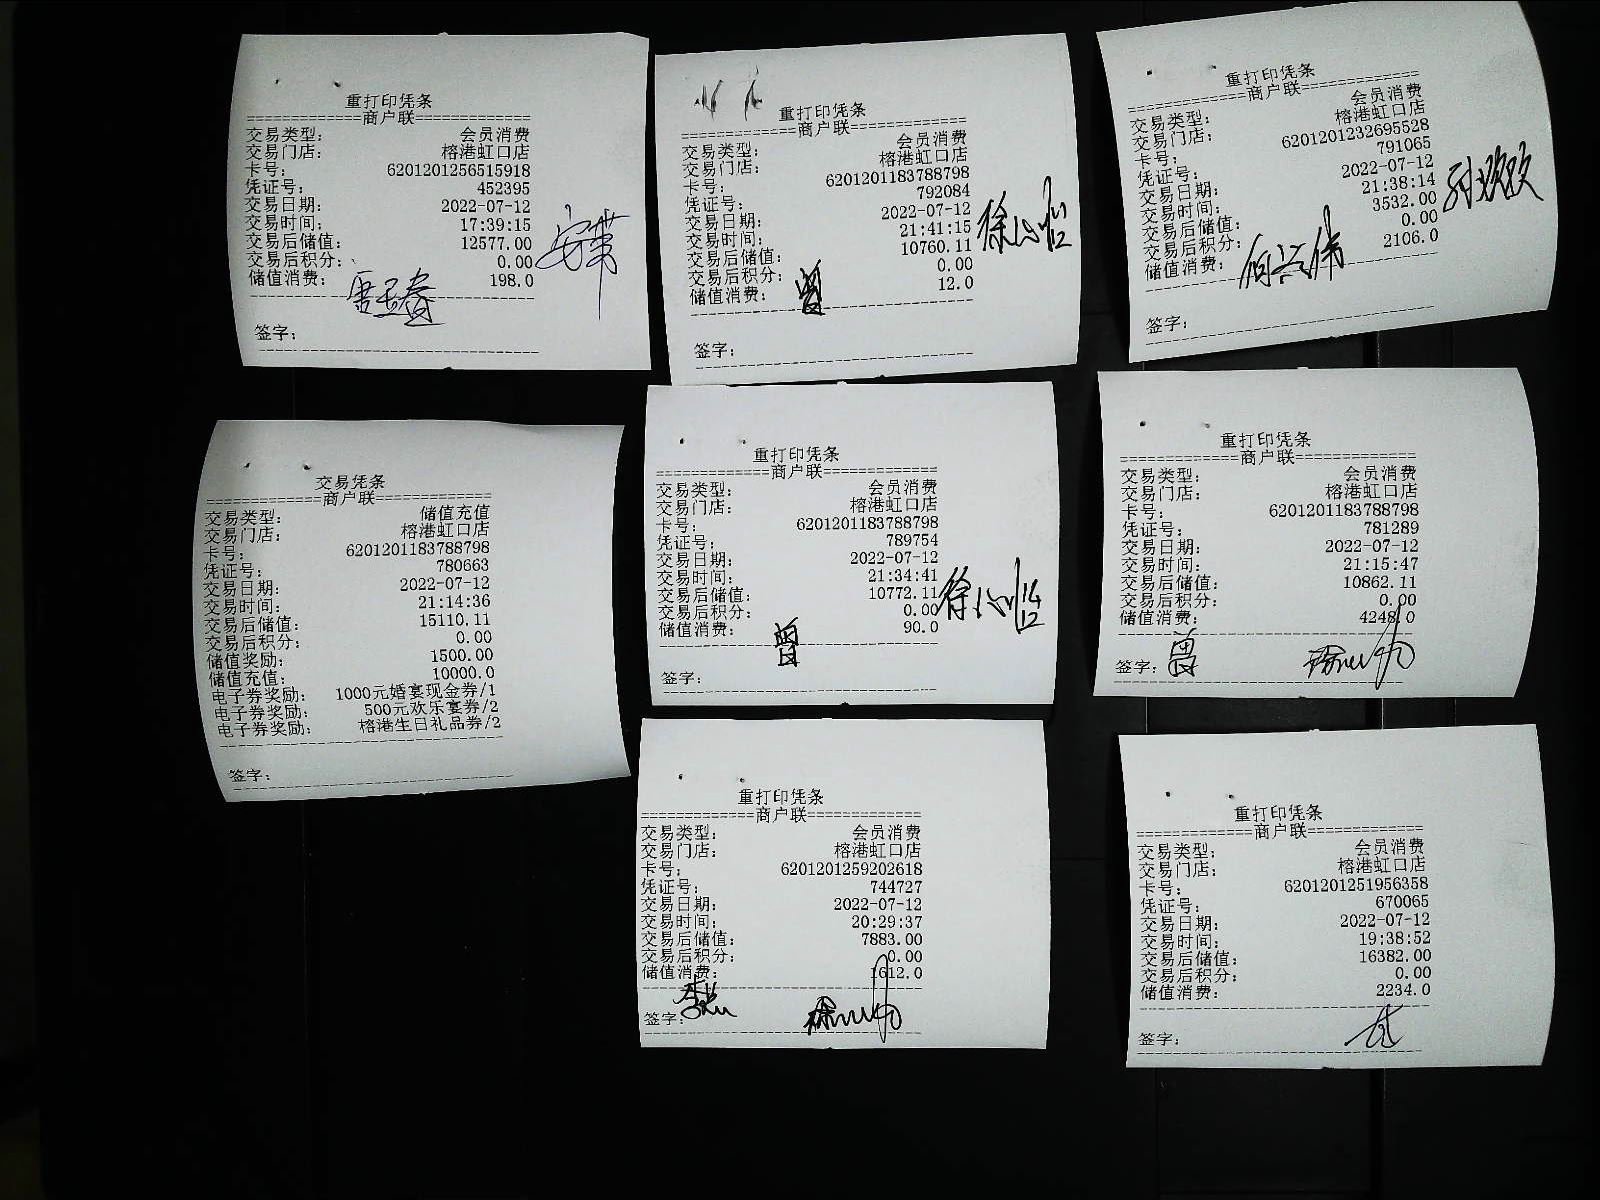 重打印凭条
=============商户联=============
交易类型: 会员消费
交易门店: 榕港虹口店
卡号: 6201201256515918
凭证号: 452395
交易日期: 2022-07-12
交易时间: 17:39:15
交易后储值: 12577.00
交易后积分: 0.00
储值消费: 198.0
签字:
重打印凭条
=============商户联=============
交易类型: 会员消费
交易门店: 榕港虹口店
卡号: 6201201183788798
凭证号: 792084
交易日期: 2022-07-12
交易时间: 21:41:15
交易后储值: 10760.11
交易后积分: 0.00
储值消费: 12.0
曾
签字:
重打印凭条
=============商户联=============
交易类型: 会员消费
交易门店: 榕港虹口店
卡号: 6201201232695528
凭证号: 791065
交易日期: 2022-07-12
交易时间: 21:38:14
交易后储值: 3532.00
交易后积分: 0.00
储值消费: 2106.0
签字:
交易凭条
=============商户联=============
交易类型: 储值充值
交易门店: 榕港虹口店
卡号: 6201201183788798
凭证号: 780663
交易日期: 2022-07-12
交易时间: 21:14:36
交易后储值: 15110.11
交易后积分: 0.00
储值奖励: 1500.00
储值充值: 10000.0
电子券奖励: 1000元婚宴现金券/1
电子券奖励: 500元欢乐宴券/2
电子券奖励: 榕港生日礼品券/2
签字:
重打印凭条
=============商户联=============
交易类型: 会员消费
交易门店: 榕港虹口店
卡号: 6201201183788798
凭证号: 789754
交易日期: 2022-07-12
交易时间: 21:34:41
交易后储值: 10772.11
交易后积分: 0.00
储值消费: 90.0
曾
签字:
重打印凭条
=============商户联=============
交易类型: 会员消费
交易门店: 榕港虹口店
卡号: 6201201183788798
凭证号: 781289
交易日期: 2022-07-12
交易时间: 21:15:47
交易后储值: 10862.11
交易后积分: 0.00
储值消费: 4248.0
签字: 曾
重打印凭条
=============商户联=============
交易类型: 会员消费
交易门店: 榕港虹口店
卡号: 6201201259202618
凭证号: 744727
交易日期: 2022-07-12
交易时间: 20:29:37
交易后储值: 7883.00
交易后积分: 0.00
储值消费: 1612.0
签字:
重打印凭条
=============商户联=============
交易类型: 会员消费
交易门店: 榕港虹口店
卡号: 6201201251956358
凭证号: 670065
交易日期: 2022-07-12
交易时间: 19:38:52
交易后储值: 16382.00
交易后积分: 0.00
储值消费: 2234.0
签字: